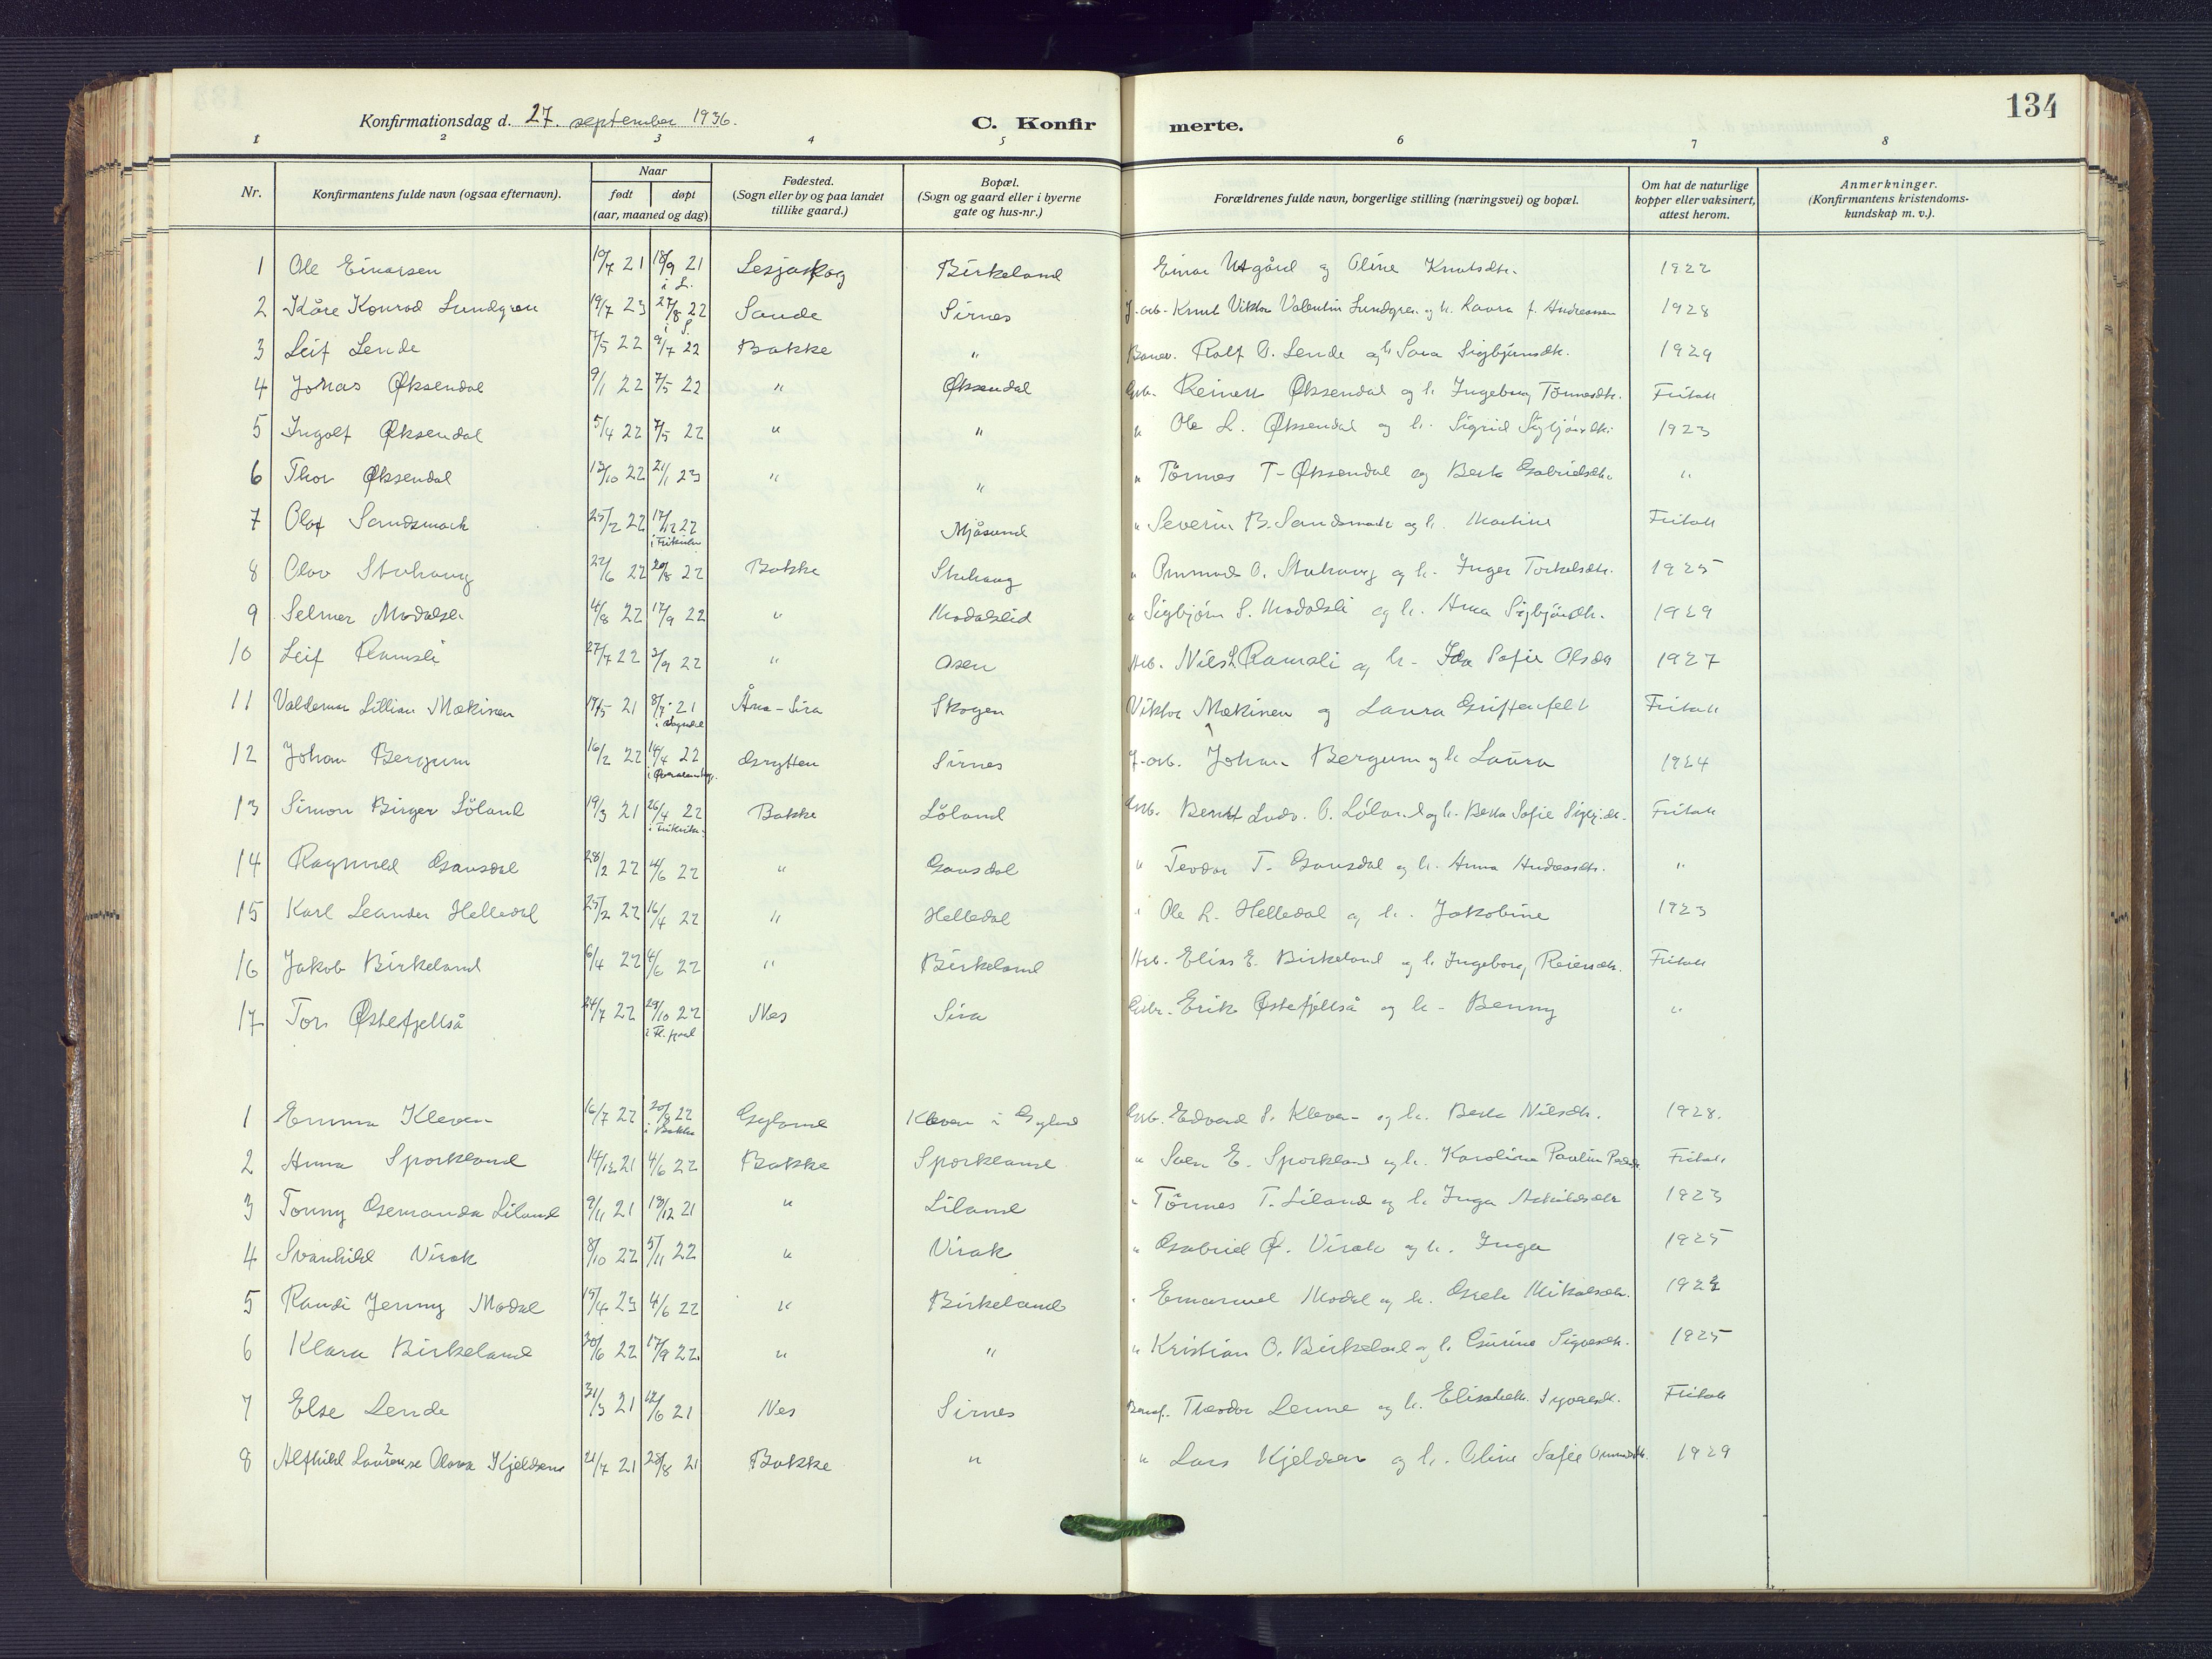 134
Konfirmationsdag d. 27. september 1936.
C. Konfirmerte.
1 2 3 4 5 6 7 8
Nr. Konfirmantens fulde navn (ogsaa efternavn). Naar født døpt (aar, maaned og dag) Fødested. (Sogn eller by og paa landet tillike gaard.) Bopæl. (Sogn og gaard eller i byerne gate og hus-nr.) Forældrenes fulde navn, borgerlige stilling (næringsvei) og bopæl. Om hat de naturlige kopper eller vaksinert, attest herom. Anmerkninger. (Konfirmantens kristendomskundskap m. v.).
1 Ole Einarsen 19/7 21 18/9 21 i L. Lesjaskog Birkeland Einar Utgård og Oline Knutsdtr. 1922
2 Kåre Konrad Lundgren 19/7 23 27/8 22 i S. Sande Sirnes J.-arb. Knut Viktor Valentin Lundgren og h. Laura f. Andreassen 1928
3 Leif Lende 7/5 22 9/7 22 Bakke " Rolf O. Lende og h. Sara Sigbjørnsdtr. 1929
4 Jonas Øksendal 9/1 22 7/5 22 " Øksendal Gbr. Reinert Øksendal og h. Ingeborg Tønnesdtr. Fritatt
5 Ingolf Øksendal 5/4 22 7/5 22 " " " Ole L. Øksendal og h. Sigrid Sigbjørnsdtr. 1923
6 Thor Øksendal 13/10 22 21/1 23 " " " Tønnes T. Øksendal og Berta Gabrielsdtr. "
7 Olaf Sandsmark 25/2 22 17/12 22 i Frikirken Mjåsund " Severin B. Sandsmark og h. Martine Fritatt
8 Olav Stuhaug 22/6 22 20/8 22 Bakke Stuhaug " Ommund O. Stuhaug og h. Inger Torkelsdtr. 1925
9 Selmer Modalsli 4/8 22 17/9 22 " Modalslid " Sigbjørn S. Modalsli og h. Anna Sigbjørnsdtr. 1929
10 Leif Ramsli 27/7 22 3/9 22 " Osen Arb. Nils L. Ramsli og h. Ida Sofie Olsdtr 1927
11 Valdemar Lillian Mækinen 19/5 21 8/7 21 i Sogndal Åna-Sira Skogen Viktor Mækinen og Laura Griffenfelt Fritatt
12 Johan Bergum 16/2 22 14/4 22 Grytten Sirnes J.-arb. Johan Bergum og h. Laura 1924
13 Simon Birger Løland 19/3 21 26/4 22 i Frikirken Bakke Løland Gbr. Berntt Ludv. O. Løland og h. Berta Sofie Sigbj.dtr. Fritatt
14 Ragnvald Gausdal 28/2 22 4/6 22 " Gausdal " Teodor T. Gausdal og h. Anna Andreasdtr. "
15 Karl Leander Helledal 25/2 22 16/4 22 " Helledal " Ole L. Helledal og h. Jakobine 1923
16 Jakob Birkeland 6/4 22 4/6 22 " Birkeland Arb. Elias E. Birkeland og h. Ingeborg Reiersdtr. Fritatt
17 Tor Østefjellså 24/7 22 29/10 22 i Fl.fjord Nes Sira Gbr. Erik Østefjellså og h. Benny "
1 Emma Kleven 16/7 22 20/8 22 i Bakke Gyland Kleven i Gyland Gbr. Edvard S. Kleven og h. Berta Nilsdtr. 1928.
2 Anna Sporkland 14/12 21 4/6 22 Bakke Sporkland " Sven E. Sporkland og h. Karolina Paulin Fritatt
3 Tonny Germanda Liland 9/11 21 18/12 21 " Liland " Tønnes T. Liland og h. Inga 1923
4 Svanhild Virak 8/10 22 5/11 22 " Virak " Gabriel G. Virak og h. Inga 1925
5 Randi Jenny Modal 19/4 23 4/6 22 " Birkeland " Emanuel Modal og h. Mikalsdtr. 1922
6 Klara Birkeland 30/6 22 17/9 22. " " " Kristian O. Birkeland og h. Gurine Sigvesdtr. 1925
7 Else Lende 31/3 21 12/6 21 Nes Sirnes Teodor Lenne og h. Elisabeth Fritatt
8 Alfhild Laurense Olava Kjeldsen 21/7 21 28/8 21 Bakke " " Lars Kjeldsen og h. Oline Sofie Ommundsdtr. 1929